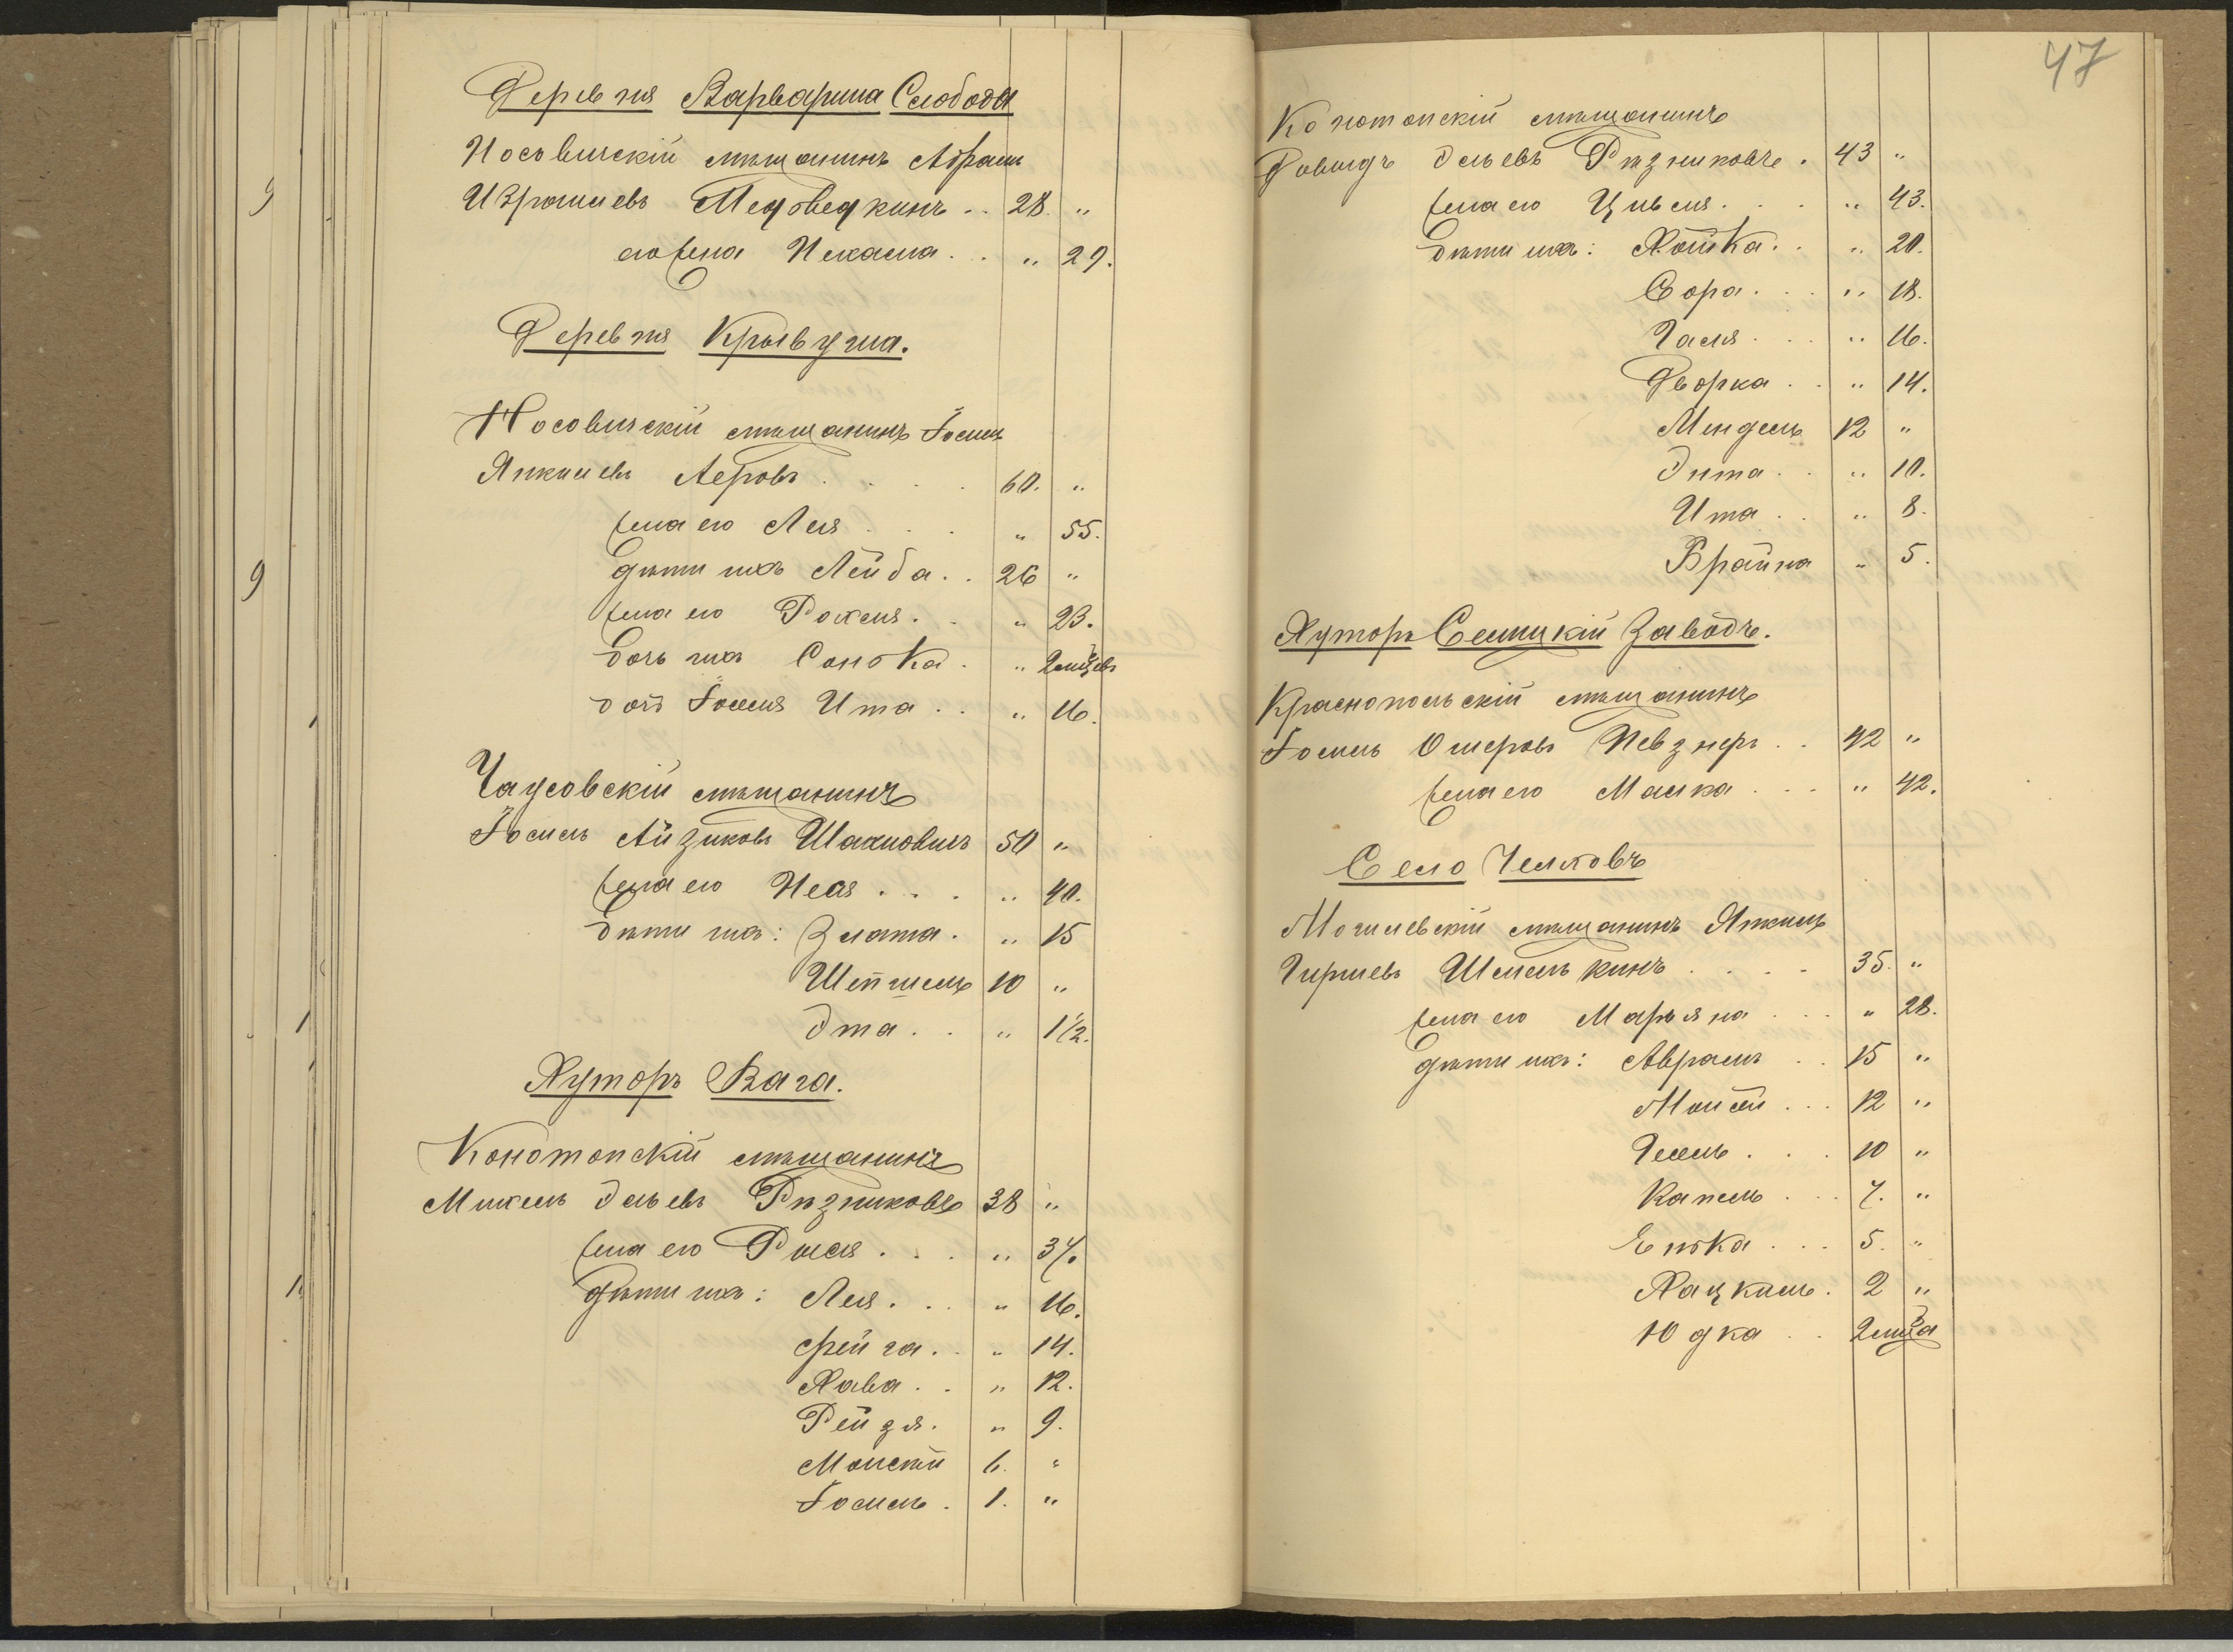 Деревня Варварина Слобода
Носовичскій мѣщанинъ Абрамъ
Израилевъ Медоведкинъ .. 28. "
его жена Нехама .. " 29.
Деревня Крывуша.
Носовичскій мѣщанинъ Іосель
Янкилевъ Аеровъ .... 60. "
жена его Лея ... " 55.
дѣти ихъ Лейба .. 26 "
жена его Рохля .. " 23.
дочь ихъ Сонька . " 2 мѣцевъ
дочь Іоселя Ита .. " 16.
Чаусовскій мѣщанинъ
Іосель Айзиковъ Шахновичъ 50 "
жена его Неся ... " 40.
дѣти ихъ: Злата . " 15
Шепшель 10 "
Эта .. " 1 1/2.
Хуторъ Вага.
Конотопскій мѣщанинъ
Михель Эльевъ Рѣзниковъ 38 "
жена его Рися ... " 37.
дѣти ихъ: Лея ... " 16.
Фейга .. " 14.
Хава .. " 12.
Рейзя . " 9.
Моисѣй 6. "
Іосель . 1. "
47
Конотопскій мѣщанинъ
Довидъ Эльевъ Рѣзниковъ . 43 "
жена его Цивья ... " 43.
дѣти ихъ: Хайка .. " 20.
Сора ... " 18.
Галя ... " 16.
Дворка .. " 14.
Мендель 12 "
Энта .. " 10.
Ита .. " 8.
Брайна " 5.
Хуторъ Селицкій Заводъ.
Краснопольскій мѣщанинъ
Іосель Ошеровъ Невзнеръ .. 42 "
жена его Малка ... " 42.
Село Челховъ
Могилевскій мѣщанинъ Янкель
Гиршевъ Шмелькинъ .... 35. "
жена его Марьяна ... " 28.
дѣти ихъ: Абрамъ .. 15 "
Моисей ... 12 "
Гесель ... 10 "
Капель ... 7. "
Енька ... 5. "
Хацкель . 2 "
Юдка .. 2 мѣца